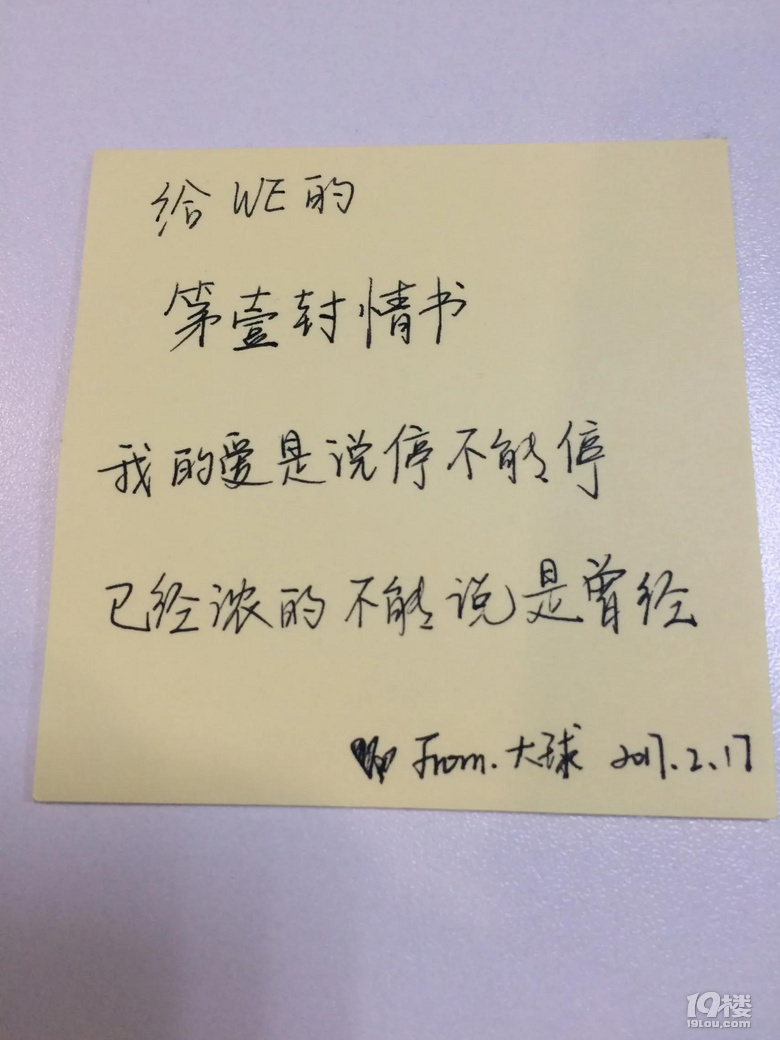 给WE的
第壹封情书
我的爱是说停不能停
已经浓的不能说是曾经
From.大球 2017.2.17
19楼
19lou.com